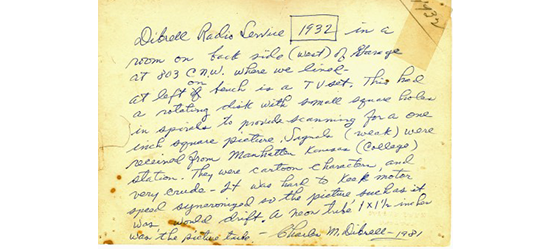 1932
Dibrell Radio Service 1932 in a
room on back side (west) of Garage
at 803 C.N.W. where we lived
at left on bench is a TV set. This had
a rotating disk with small square holes
in spirals to provide scanning for a one
inch square picture. Signals (weak) were
received from Manhatten Kansas (College)
station. They were cartoon characters and
very crude - It was hard to keek motor
speed syncronized so the picture such as it
was would drift. A neon tube 1 x 1 1/2 inches
was the picture tube - Charles M. Dibrell - 1981